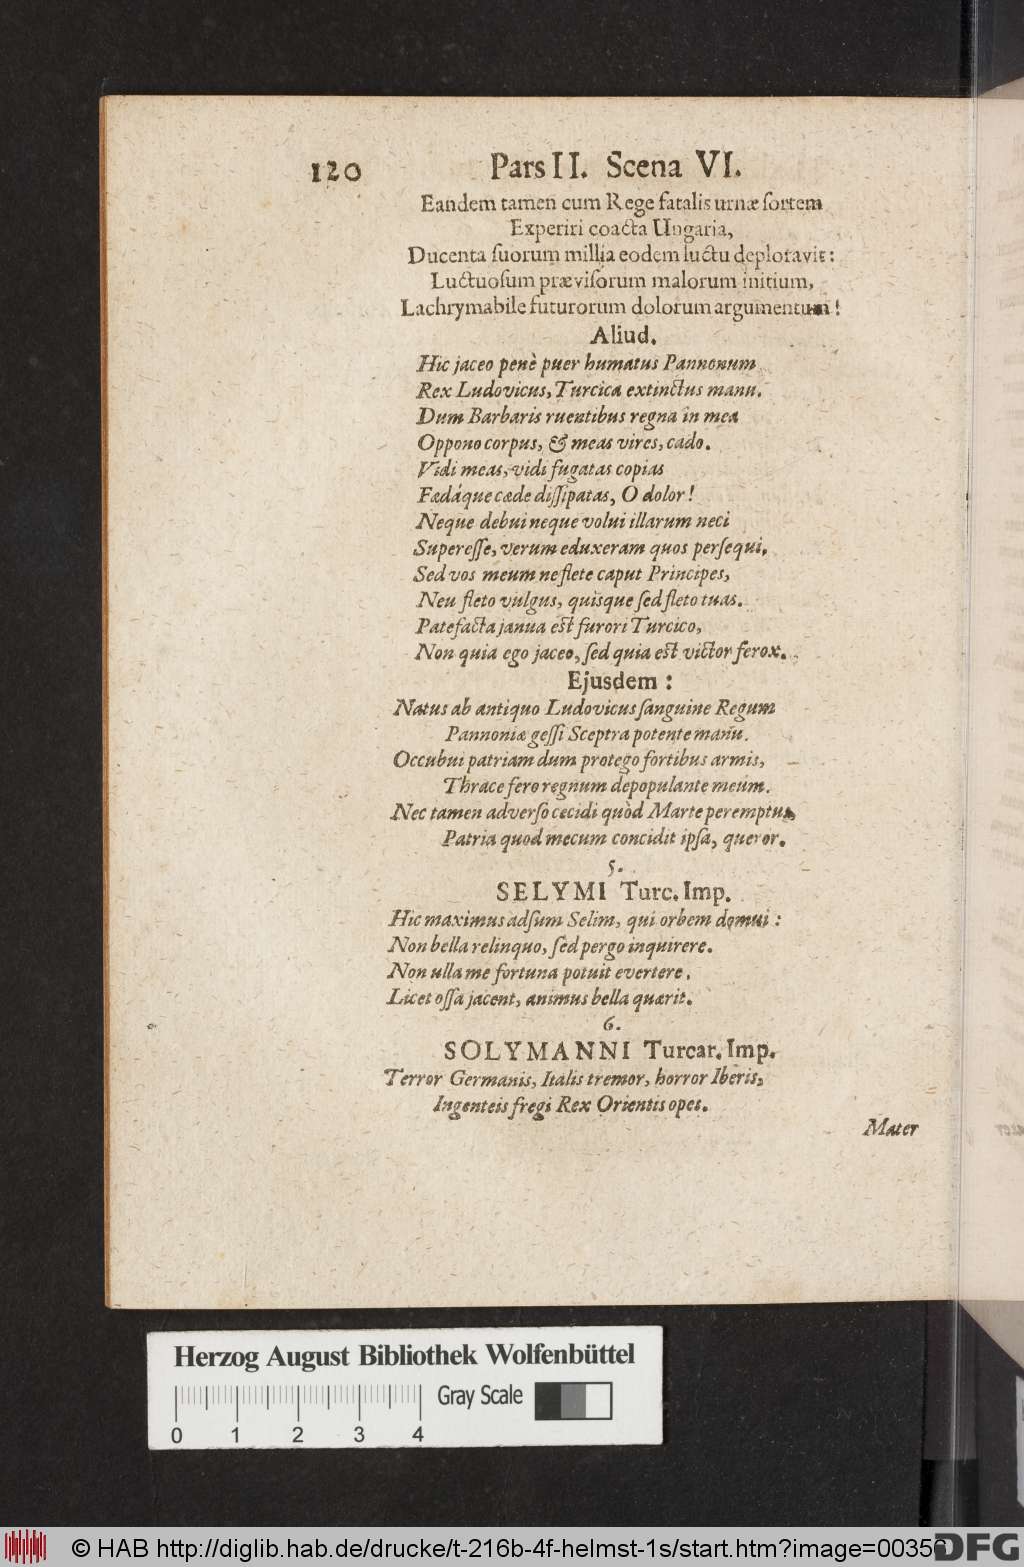 120 Pars II. Scena VI.
Eandem tamen cum Rege fatalis urnæ ſortem
Experiri coacta Ungaria,
Ducenta ſuorum millia eodem luctu deploravit:
Luctuoſum præviſorum malorum initium,
Lachrymabile futurorum dolorum argumentum!
Aliud.
Hic jaceo penè puer humatus Pannonum
Rex Ludovicus, Turcica extinctus manu.
Dum Barbaris ruentibus regna in mea
Oppono corpus, & meas vires, cado.
Vidi meas, vidi fugatas copias
Fædáque cæde diſſipatas, O dolor!
Neque debui neque volui illarum neci
Supereſſe, verum eduxeram quos perſequi.
Sed vos meum ne flete caput Principes,
Neu fleto vulgus, quisque ſed fleto tuas.
Patefacta janua eſt furori Turcico,
Non quia ego jaceo, ſed quia eſt victor ferox.
Ejusdem:
Natus ab antiquo Ludovicus ſanguine Regum
Pannoniæ geſſi Sceptra potente manu.
Occubui patriam dum protego fortibus armis,
Thrace fero regnum depopulante meum.
Nec tamen adverſo cecidi quòd Marte peremptus,
Patria quod mecum concidit ipſa, queror.
5.
SELYMI Turc. Imp.
Hic maximus adſum Selim, qui orbem domui:
Non bella relinquo, ſed pergo inquirere.
Non ulla me fortuna potuit evertere.
Licet oſſa jacent, animus bella quærit.
6.
SOLYMANNI Turcar. Imp.
Terror Germanis, Italis tremor, horror Iberis,
Ingenteis fregi Rex Orientis opes.
Mater
Herzog August Bibliothek Wolfenbüttel
Gray Scale
0 1 2 3 4
© HAB http://diglib.hab.de/drucke/t-216b-4f-helmst-1s/start.htm?image=00356
DFG